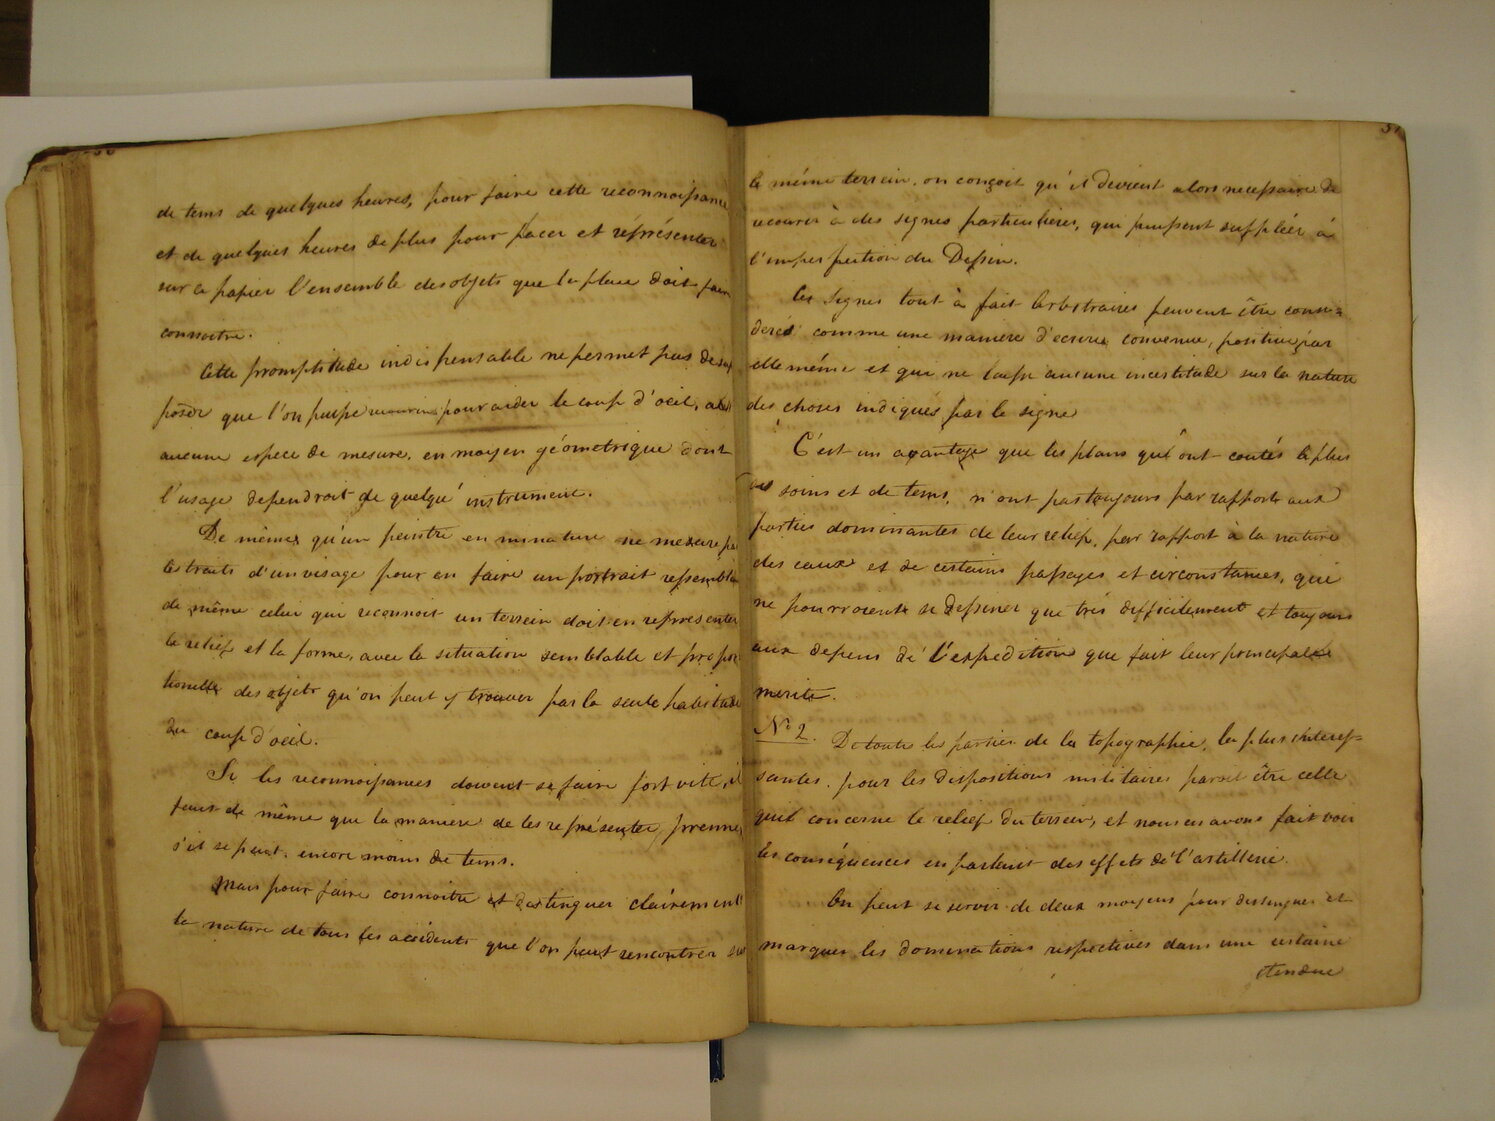 de tems de quelques heures, pour faire cette reconnoissance
et de quelques heures de plus pour placer et réprésenter
sur ce papier l'ensemble des objets que le plan doit faire
connoitre.
Cette promptitude indispensable ne permet pas de sup
poser que l'on puisse recourir pour aider le coup d'oeil, a
aucune espece de mesure, en moyen géometrique dont
l'usage dependroit de quelque instrument.
De même qu'un peintre en minature ne mesure pas
les traits d'un visage pour en faire un portrait ressemblant
de même celui qui reconnoit un terrein doit en représenter
le relief et la forme, avec la situation semblable et propor
tionelle des objets qu'on peut y trouver par la seule habitude
du coup d'oeil.
Si les reconnoissances doivent se faire fort vite, il
faut de même que la maniere de les représenter prenne,
s'il se peut, encore moins de tems.
Mais pour faire connoitre et distinguer clairement
la nature de tous les accidents que l'on peut rencontrer sur
51
le même terrein, on conçoit qu'il devient alors necessaire de
recourir à des signes particulières, qui puissent suppléer à
l'imperfection du Dessin.
Ces signes tout à fait arbitraires peuvent être consi=
derés comme une maniere d'ecrire convenue, positive par
elle même et qui ne laisse aucune incertitude sur la nature
des choses indiqués par le signe
C'est un avantage que les plans qui ont coutés le plus
de soins et de tems, n'ont pas toujours par rapport aux
parties dominantes de leur relief, par rapport à la nature
des eaux et de certains passages et circonstances, qui
ne pourroient se dessiner que très difficilement et toujours
aux depens de l'expedition qui fait leur principale
merite.
No 2. De toute les parties de la topographie, la plus interes=
sante, pour les dispositions militaires paroit être celle
qui concerne le relief du terrein, et nous en avons fait voir
les conséquences en parlant des effets de l'artillerie.
On peut se servir de deux moyens pour distinguer et
marquer les dominations respectives dans une certaine
etendue